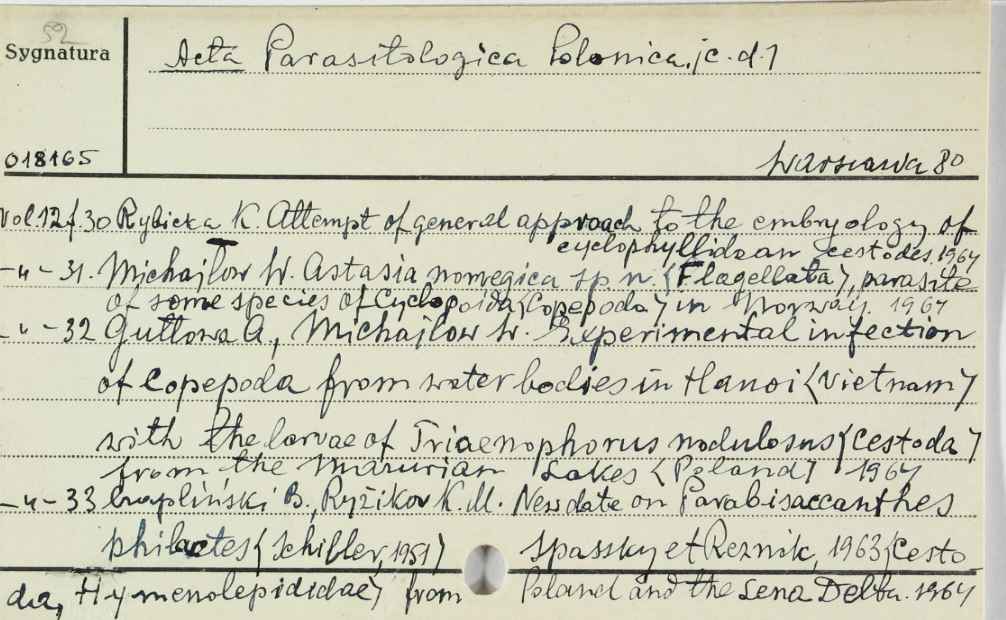 52
Sygnatura
Acta Parasitologica Polonica. /c.d.7
018165
Warszawa 80
Vol. 12 f. 30 Rybicka K. Attempt of general approach to the embryology of
cyclophyllidean cestodes. 1964
-"- 31. Michajłow W. Astasia norvegica sp n. (Flagellata), parasite
of some species of Cyclopoida (Copepoda) in Norway. 1964
-"- 32 Guttowa A., Michajłow W. Experimental infection
of Copepoda from water bodies in Hanoi (Vietnam)
with the larvae of Triaenophorus nodulosus (Cestoda)
from the Mazurian Lakes (Poland) 1964
-"- 33 Czapliński B., Ryžikov K. M. New date on Parabisaccanthes
philactes (Schiller, 1951) Spassky et Reznik, 1963 (Cesto
da, Hymenolepididae) from Poland and the Lena Delta. 1964